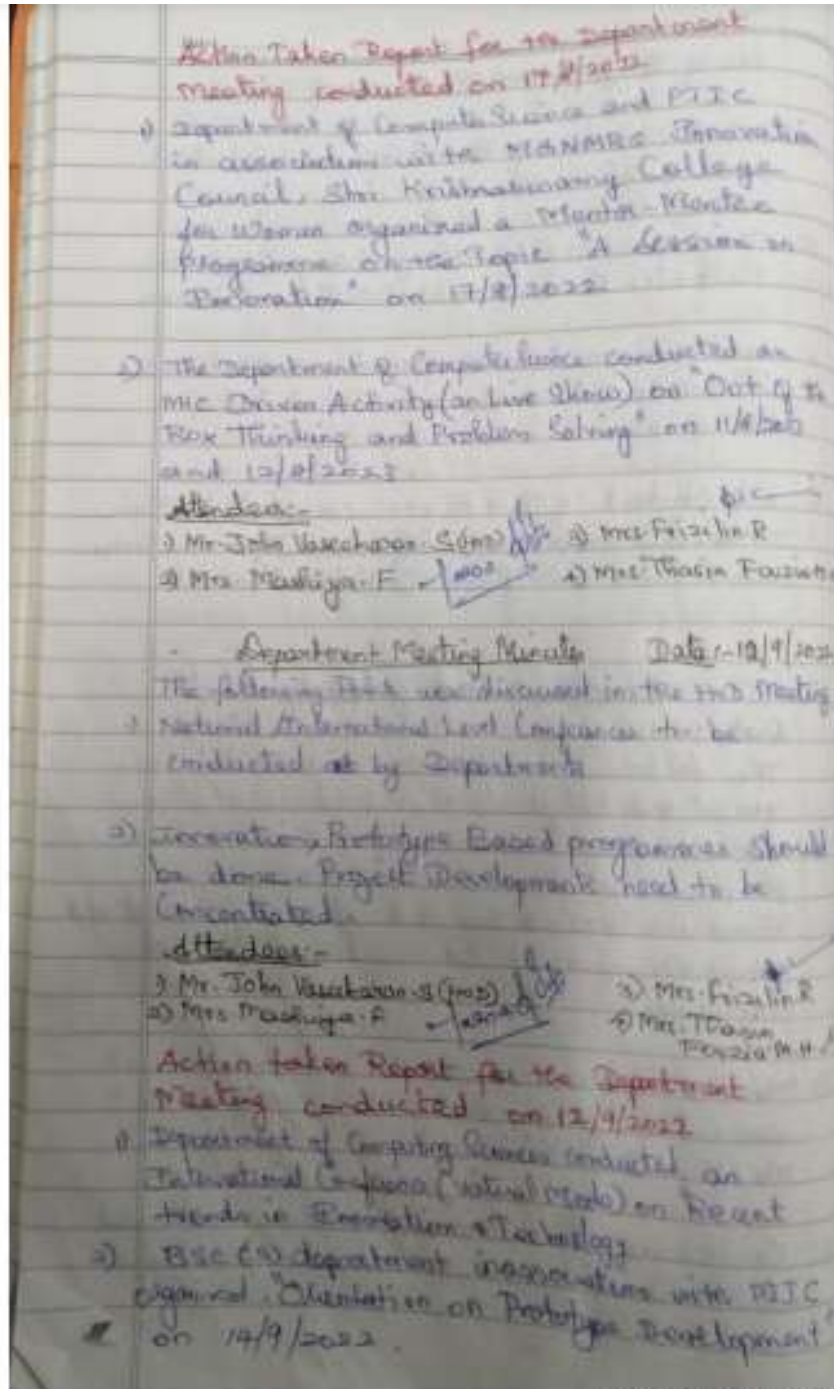 Action Taken Report for the Department
Meeting conducted on 17/8/2022
1) Department of Computer Science and
in association with Innovation
Council, Shri Krishnaswamy College
for Women organized a Mentor-Mentee
Programme on the Topic "A Session on
on 17/8/2022
2) The Department of Computer Science conducted an
MIC Driven Activity (an Live Show) on "Out of the
Box Thinking and Problem Solving" on
and
Attendees:-
1) Mr. John Vasceharan. S 3) Mrs. Frizilin R
2) Mrs. Mashiya. F 4) Mrs. Thasin
Department Meeting Minutes Date:- 12/9/2022
The following were discussed in the HOD Meeting
1) National International Level Conferences to be
conducted at by Departments
2) Innovation, Prototype Based programmes should
be done. Project Developments need to be
Concentrated.
Attendees:-
1) Mr. John Vaseekaran. S 3) Mrs. Frizilin R
2) Mrs. Mashiya. F 4) Mrs. Thasin
Fouzia M.H
Action taken Report for the Department
Meeting conducted on 12/9/2022
1) Department of conducted an
International Mode) on Recent
trends in & Technology
2) BSC department inassociation with
organized "Orientation on Prototype Development"
on 14/9/2022.